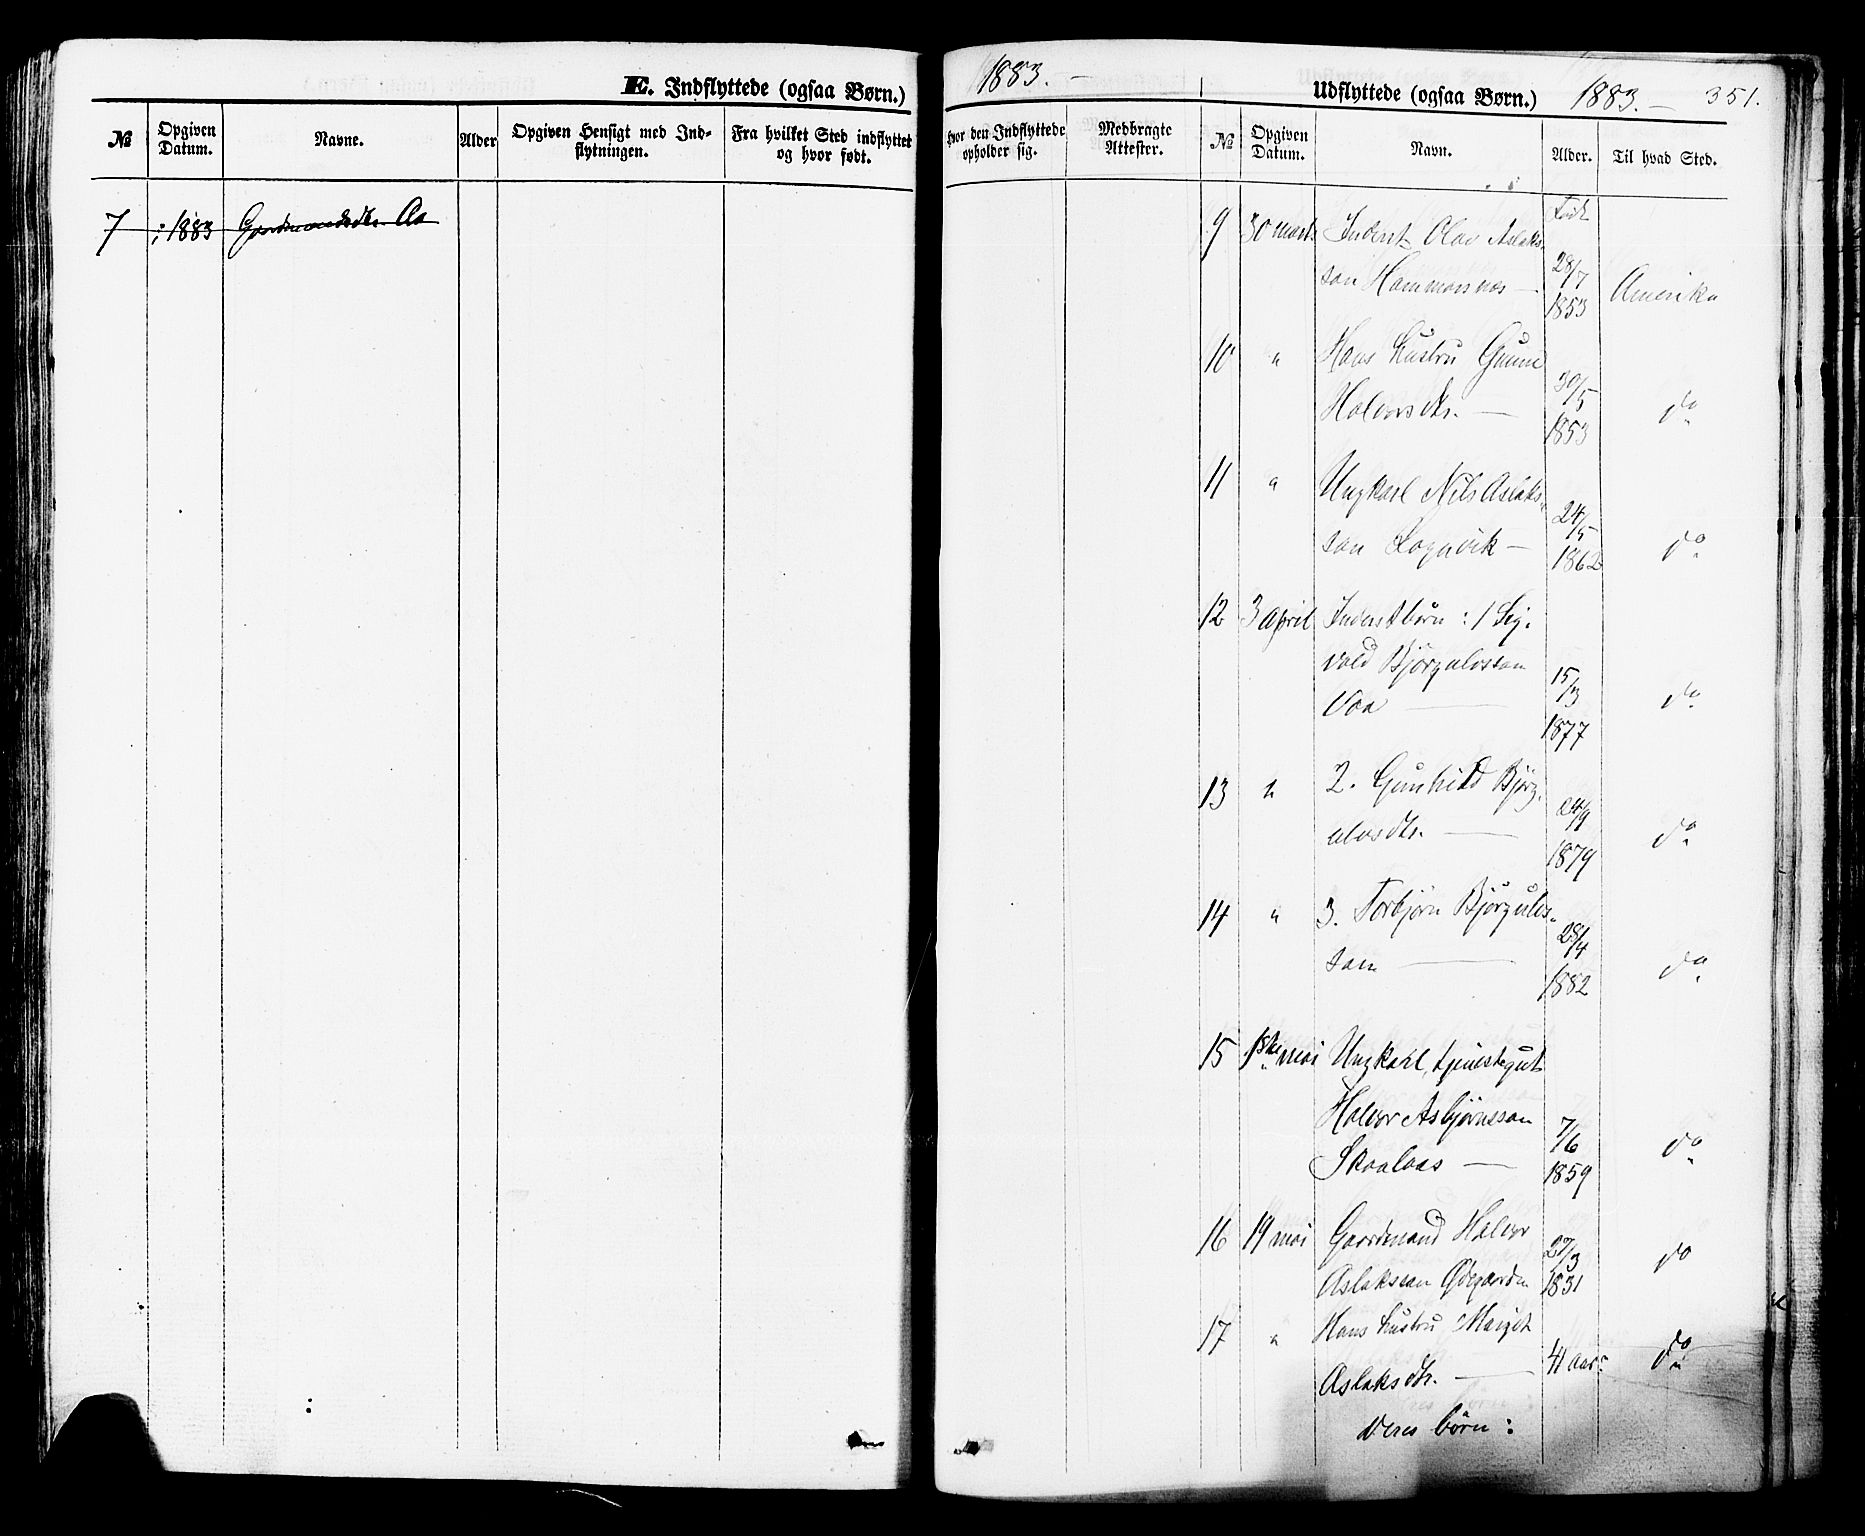 E. Indflyttede (ogsaa Børn.)
№
Opgiven Datum.
Navne.
Alder
Opgiven Hensigt med Ind-
flytningen.
Fra hvilket Sted indflyttet
og hvor født.
7 1883 Gaardmandsdtr. Aa
1883. —
Udflyttede (ogsaa Børn.) 1883. — 351.
hvor den Indflyttede
opholder sig.
Medbragte
Attester.
№
Opgiven
Datum.
Navn.
Alder.
Til hvad Sted.
9 30 marts Inderst Olav Aslaks- Född
son Hammarsnæs — 28/7 1853 Amerika
10 " Hans hustru Gunne
Halvorsdtr. — 30/5 1853 do
11 " Ungkarl Nils Aslaks-
son Lognvik — 24/5 1862 do
12 3 april Inderstbørn : 1 Sig-
vald Bjørgulvsson 15/3
Vaa — 1877 do
13 " 2. Gunhild Bjørg-
ulvsdtr. — 24/9 1879 do
14 " 3. Torbjørn Bjørgulvs-
son — 28/4 1882 do
15 1ste mai Ungkarl, tjenestegut
Halvor Asbjørnsson 7/6 do
Skaalaas — 1859
16 19 mai Gaardmand Halvor 27/3 do
Aslaksson Ødegaarden 1831
17 " Hans hustru Margit
Aslaksdtr. — 41 aar do
Deres børn :